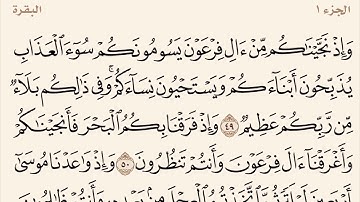 الجزء ١ البقرة
وَإِذْ نَجَّيْنَٰكُم مِّنْ ءَالِ فِرْعَوْنَ يَسُومُونَكُمْ سُوٓءَ ٱلْعَذَابِ
يُذَبِّحُونَ أَبْنَآءَكُمْ وَيَسْتَحْيُونَ نِسَآءَكُمْ ۚ وَفِى ذَٰلِكُم بَلَآءٌ
مِّن رَّبِّكُمْ عَظِيمٌ ٤٩ وَإِذْ فَرَقْنَا بِكُمُ ٱلْبَحْرَ فَأَنجَيْنَٰكُمْ
وَأَغْرَقْنَآ ءَالَ فِرْعَوْنَ وَأَنتُمْ تَنظُرُونَ ٥٠ وَإِذْ وَٰعَدْنَا مُوسَىٰٓ
أَرْبَعِينَ لَيْلَةً ثُمَّ ٱتَّخَذْتُمُ ٱلْعِجْلَ مِنۢ بَعْدِهِۦ وَأَنتُمْ ظَٰلِمُونَ